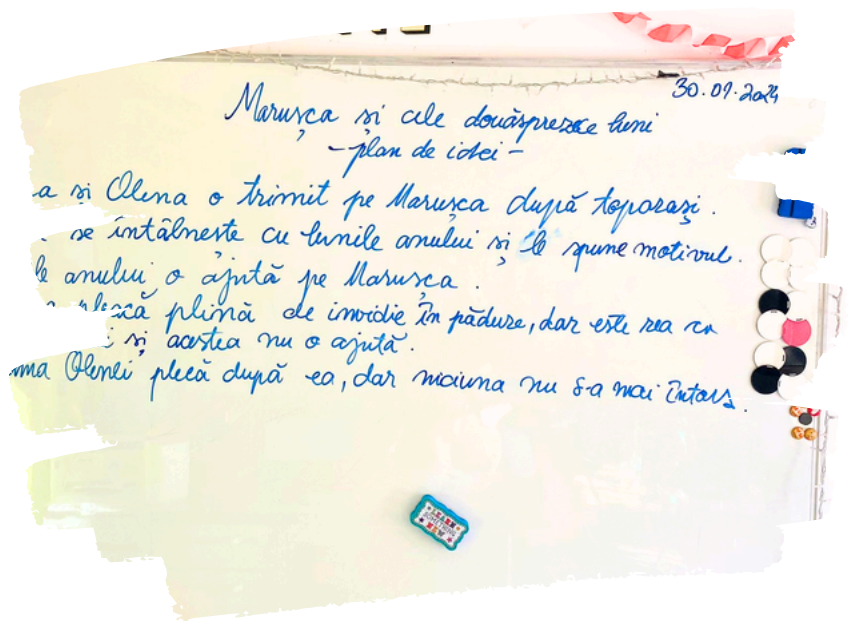 30.01.2024
Marușca și cele douăsprezece luni
- plan de idei -
a și Olena o trimit pe Marușca după toporași.
se întâlnește cu lunile anului și le spune motivul.
le anului o ajută pe Marușca.
pleacă plină de invidie în pădure, dar este rea cu
i și acestea nu o ajută.
ma Olenei plecă după ea, dar niciuna nu s-a mai întors.
LEARN
SOMETHING
NEW